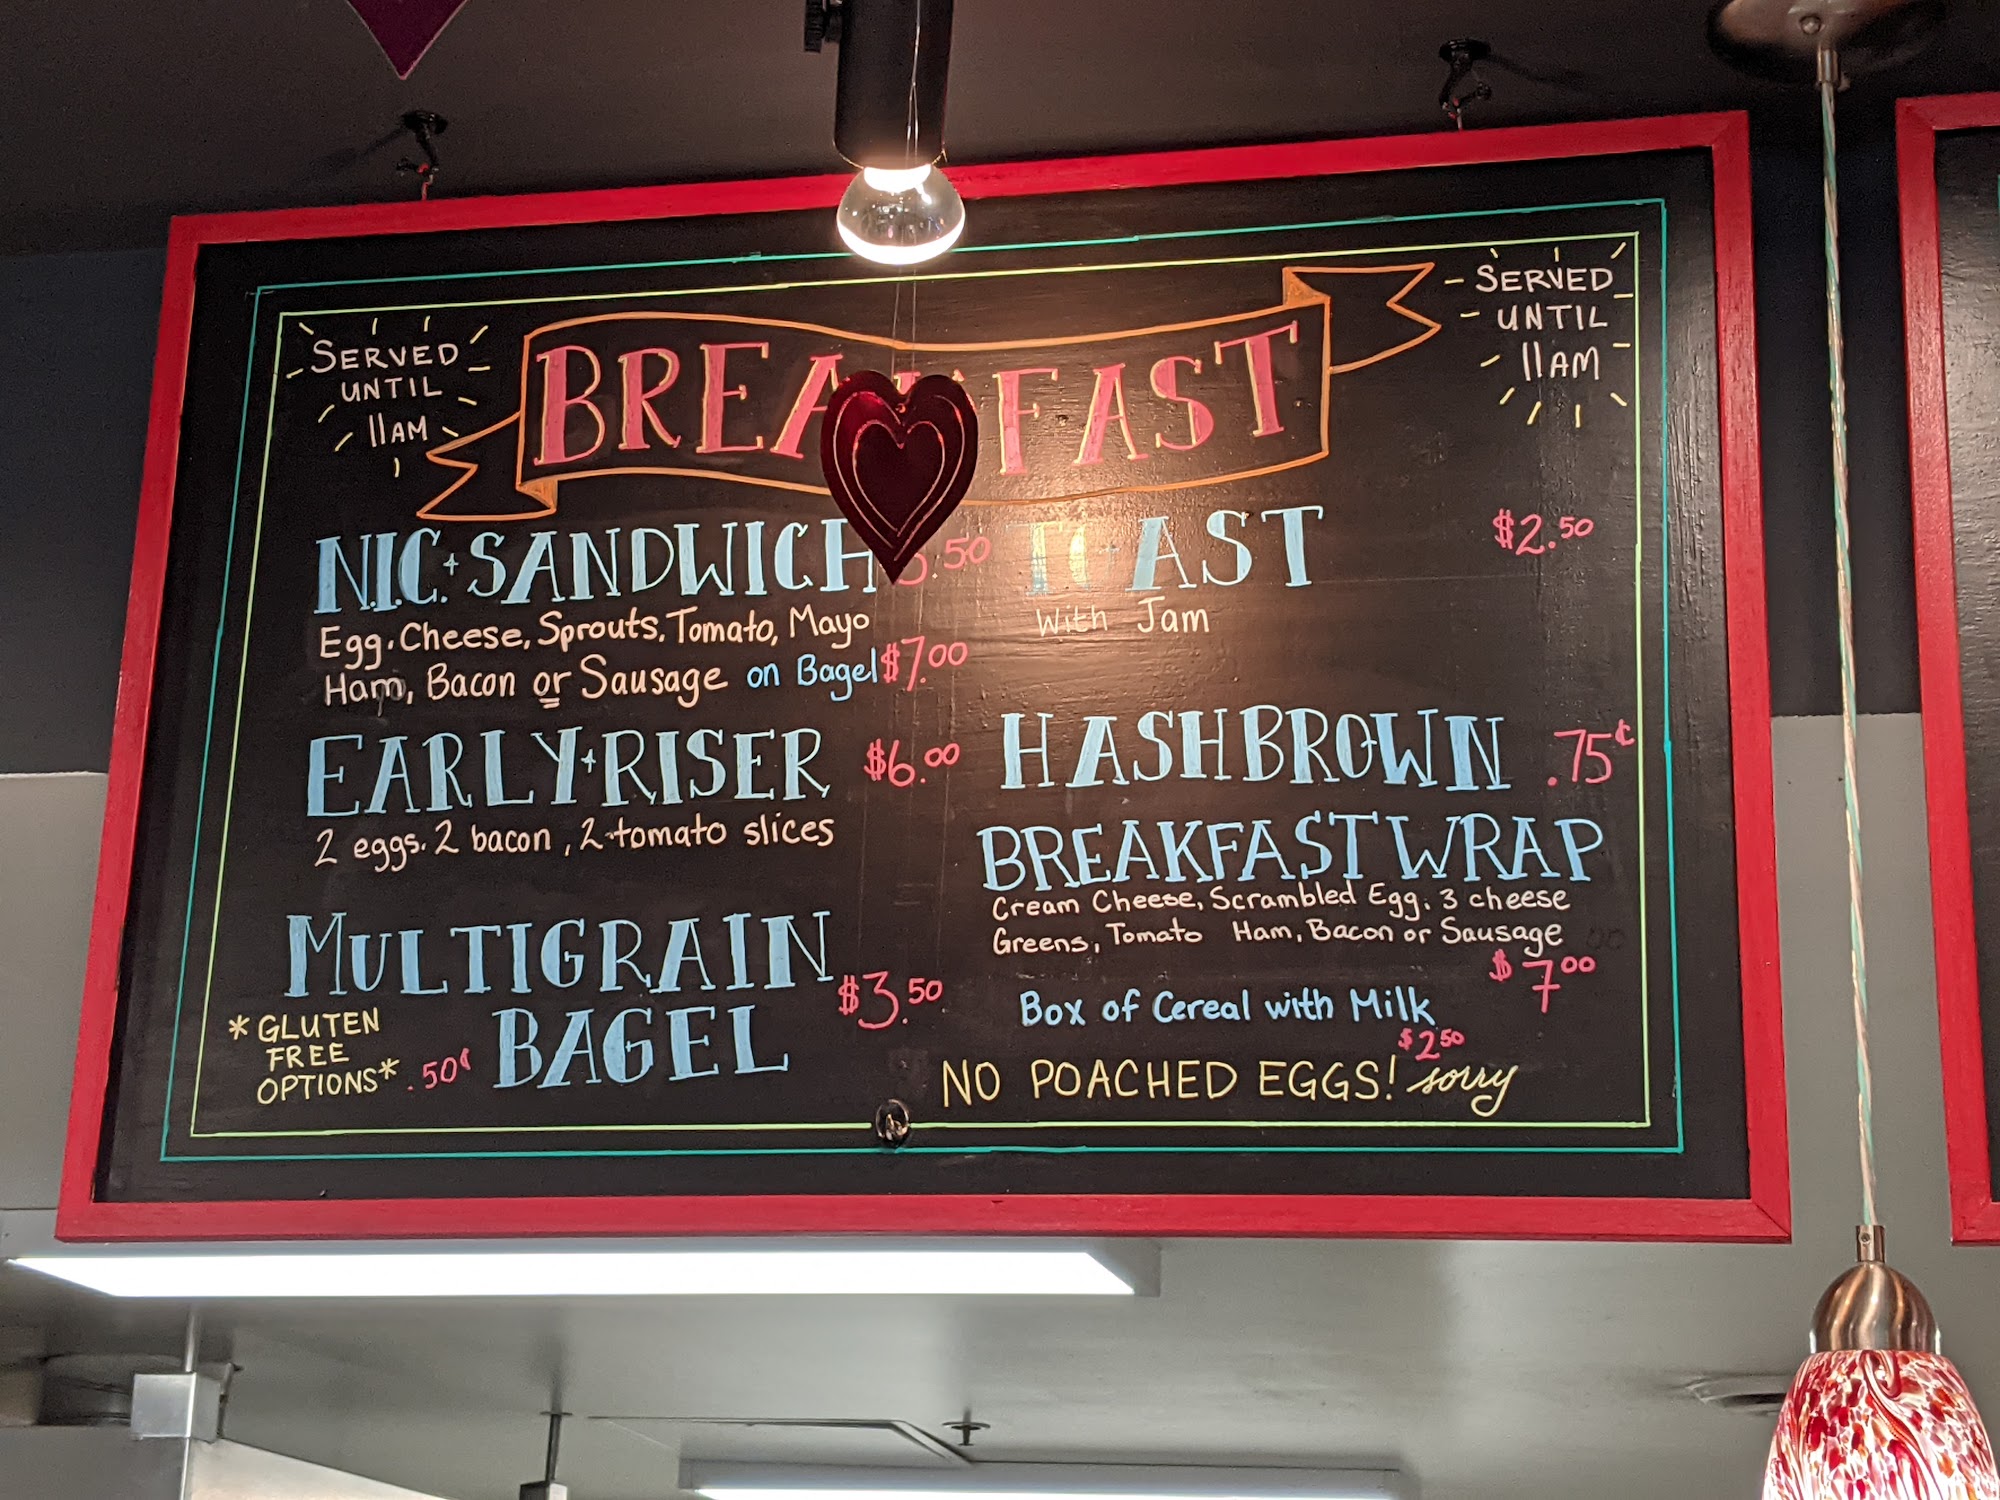 SERVED
UNTIL
11AM
BREAKFAST
SERVED
UNTIL
11AM
N.I.C. SANDWICH .50
Egg, Cheese, Sprouts, Tomato, Mayo
Ham, Bacon or Sausage on Bagel $7.00
EARLY RISER $6.00
2 eggs, 2 bacon, 2 tomato slices
MULTIGRAIN
BAGEL $3.50
*GLUTEN
FREE
OPTIONS* .50¢
TOAST $2.50
With Jam
HASHBROWN .75¢
BREAKFAST WRAP
Cream Cheese, Scrambled Egg, 3 cheese
Greens, Tomato Ham, Bacon or Sausage
$7.00
Box of Cereal with Milk
$2.50
NO POACHED EGGS! sorry